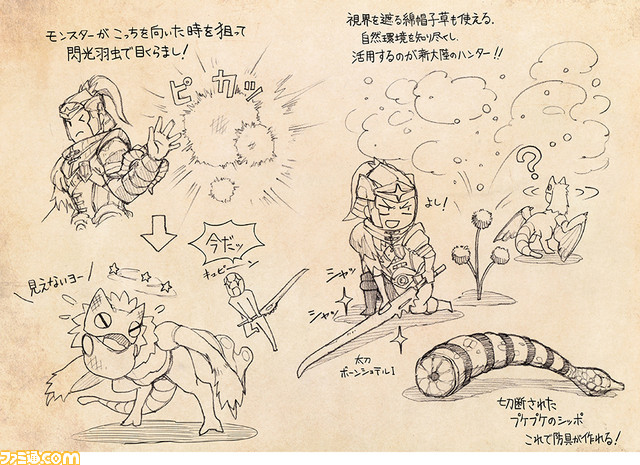 モンスターがこっちを向いた時を狙って
閃光羽虫で目くらまし!
ピカッ
今だッ
キュピーン
見えないヨー
視界を遮る綿帽子草も使える。
自然環境を知り尽くし、
活用するのが新大陸のハンター!!
?
よし!
シャッ
シャッ
太刀
ボーンショテルⅠ
切断された
プケプケのシッポ
これで防具が作れる!
ファミ通.com